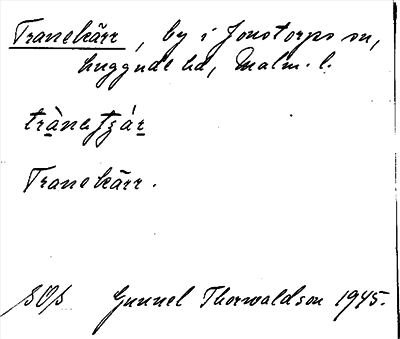 Tranekärr, by i Jonstorps sn,
Luggude hd, Malm. l.
Tranekärr.
Gunnel Thorwaldson 1945.